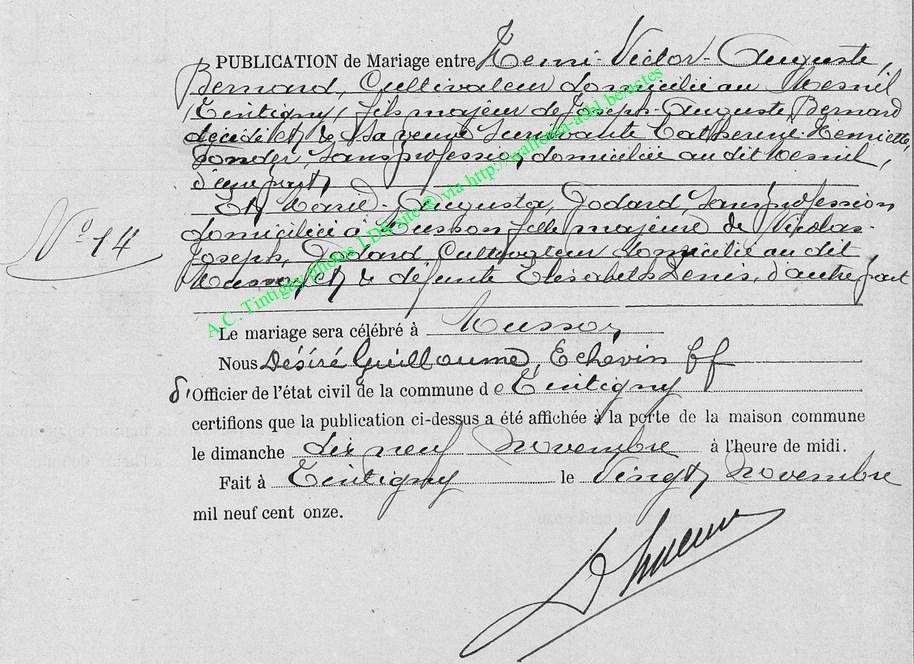 PUBLICATION de Mariage entre Henri-Victor-Auguste,
Bernard, Cultivateur domicilié au Mesnil
Tintigny, fils majeur de Joseph-Auguste Bernard
décédé et de sa veuve survivante Catherine-Henriette,
sans profession, domiciliée au dit Mesnil,
d'une part,
Et Marie-Augusta, Godard, sans profession
domiciliée à Musson fille majeure de Nicolas-
Joseph, Godard, Cultivateur domicilié au dit
Musson, et de défunte Elisabeth Denis, d'autre part
N° 14
Le mariage sera célébré à Musson,
Nous Désiré Guillaume, Echevin ff
d'Officier de l'état civil de la commune de Tintigny
certifions que la publication ci-dessus a été affichée à la porte de la maison commune
le dimanche dix neuf Novembre à l'heure de midi.
Fait à Tintigny le vingt Novembre
mil neuf cent onze.
A.C. Tintigny photos LDS site © via http://wallonia-asbl.be/actes